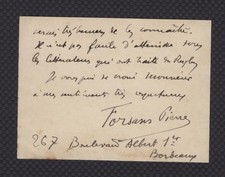 serais très heureux de les connaître.
Il n'est pas facile d'atteindre tous
les littérateurs qui ont traité du Rugby
Je vous prie de croire Monsieur
à mes sentiments très
Forsans Pierre
267 Boulevard Albert 1er
Bordeaux